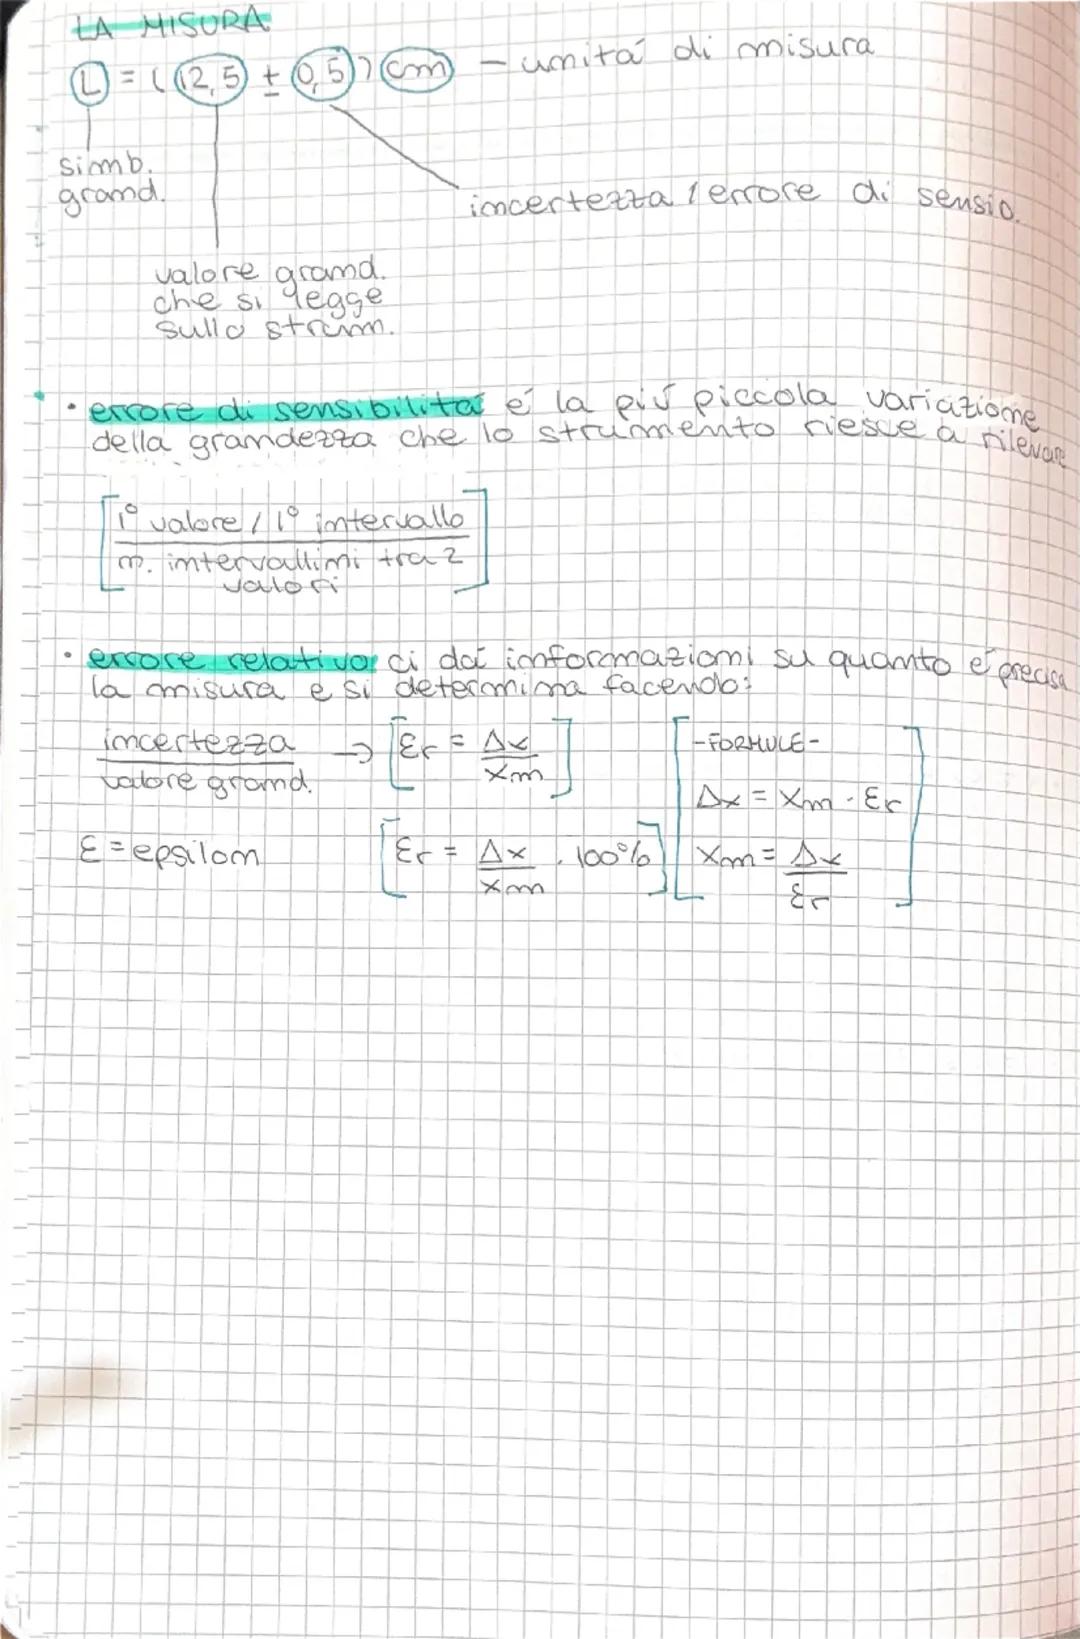 LA MISURA
L = (12,5 ± 0,5) cm - unitá di misura
simb.
grand.
incertezza / errore di sensio.
valore grand.
che si legge
sullo strum.
• errore di sensibilitá é la piú piccola variazione
della grandezza che lo strumento riesce a rilevare
1° valore / 1° intervallo
n. intervallini tra 2
valori
• errore relativo: ci dá informazioni su quanto é precisa
la misura e si determina facendo:
incertezza / valore grand. → [Er = Δx / xm]
-FORMULE-
Δx = xm · Er
ε = epsilon [Er = Δx / xm · 100%] xm = Δx / Er